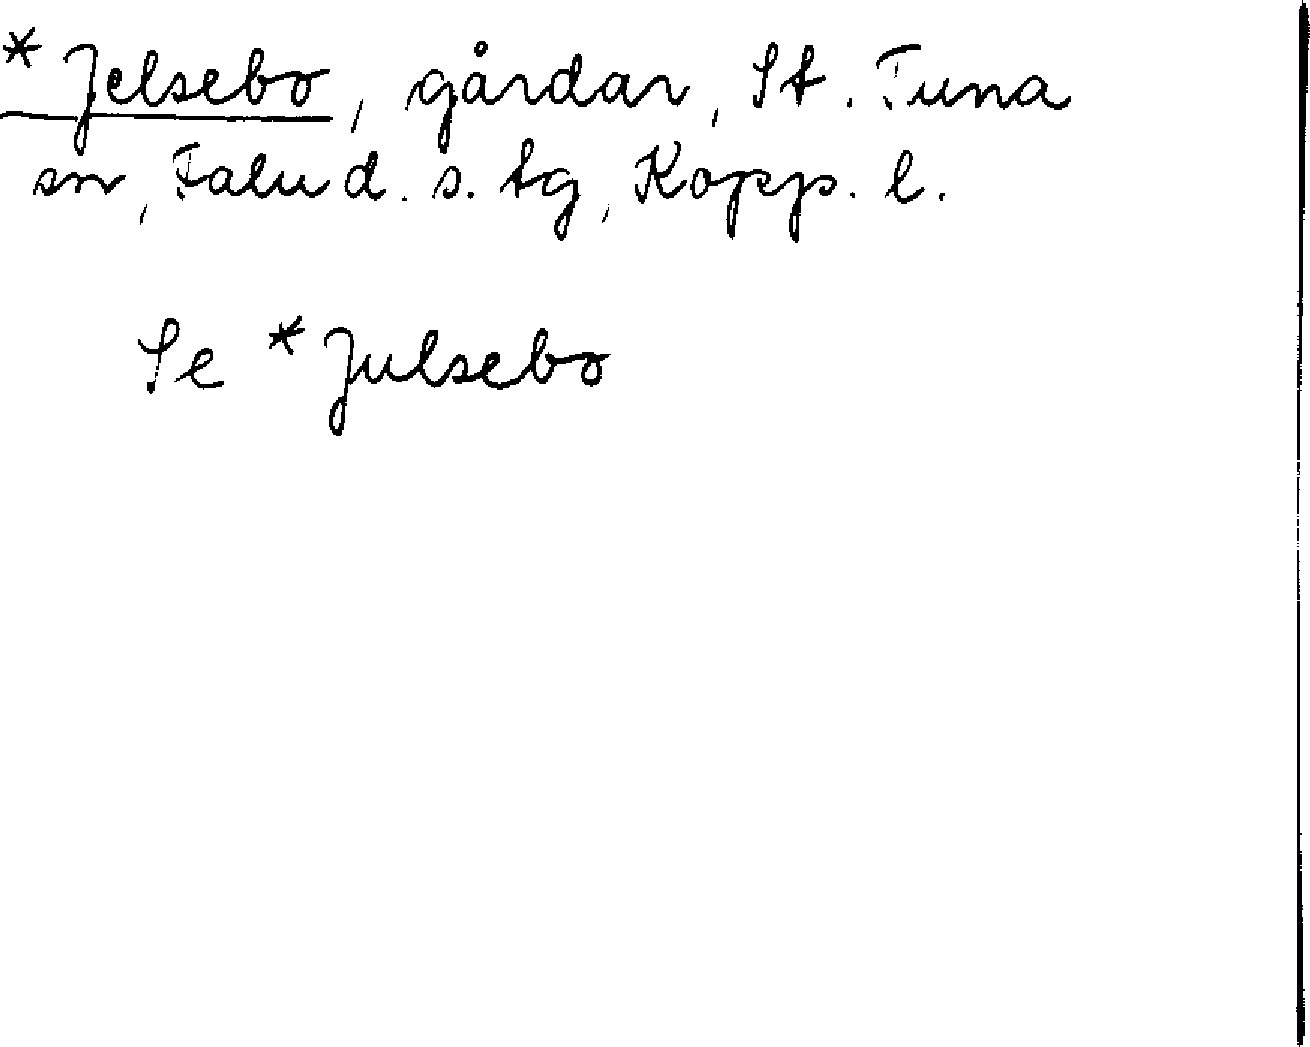 * Jelsebo, gårdar, St. Tuna
sn, Falu d. s. tg, Kopp. l.
Se * Julsebo